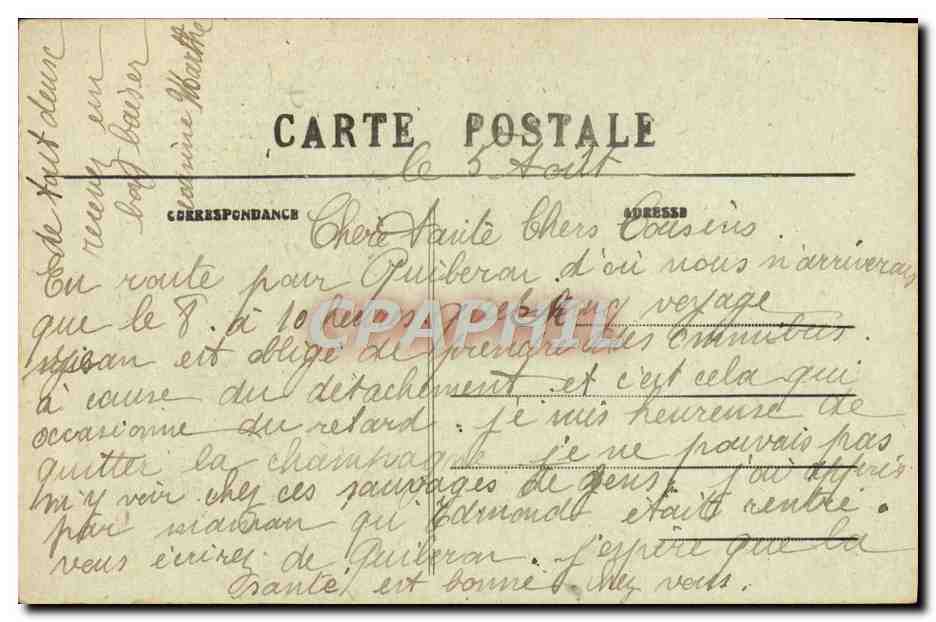 CARTE POSTALE
le 5 Août
CORRESPONDANCE
ADRESSE
Chère Tante Chers Cousins.
En route pour Quiberon. d'où nous n'arriverons
que le 8. à 10 heures quel long voyage
est obligé de prendre des omnibus.
à cause du détachement et c'est cela qui
occasionne du retard. je suis heureuse de
quitter la champagne je ne pouvais pas
m'y voir chez ces sauvages de gens, j'ai appris
par maman qu'Edmond était rentré.
vous écrirez de Quiberon. j'espère que la
santé est bonne chez vous.
de tout deux
recevez un
bon baiser
Marthe
CPAPHIL